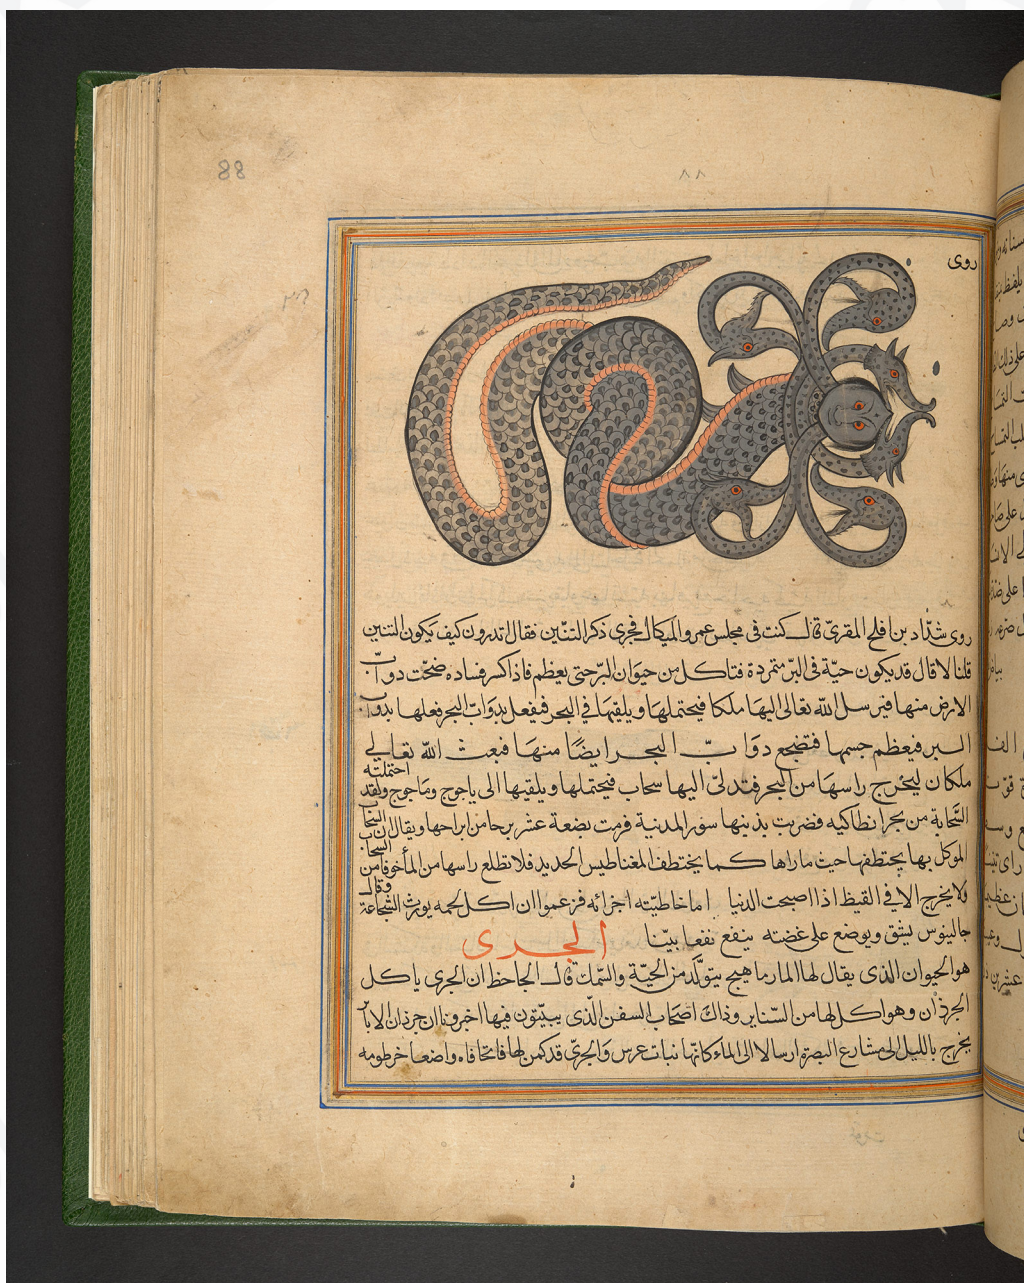 88
٨٨
روى
روى شدّاد بن افلح المقرىّ قال كنت فى مجلس عمرو البكال فجرى ذكر التنّين فقال اتدرون كيف يكون التنين
قلنا لا قال قد يكون حيّة فى البرّ متمردة فتاكل من حيوان البرّ حتى يعظم فاذا كسر فساده ضجّت دوابّ
الارض منها فيرسل الله تعالى اليها ملكا فيحتملها ويلقيها فى البحر فيفعل بدوابّ البحر فعلها بدواب
البر فيعظم جسمها فتضجع دوابّ البحر ايضًا منها فبعث الله تعالى
ملكان ليخرج راسها من البحر فتدلىّ اليها سحاب فيحتملها ويلقيها الى ياجوج وماجوج ولقد احتملته
السّحابة من بحر انطاكيه فضربت بذنبها سور المدنية فرمت بضعة عشر برجا من ابراحها ويقال ان السحاب
الموكل بها يختطفها حيث ماراها كما يختطف المغناطيس الحديد فلا تطلع راسها من الماء خوفا من السحاب
ولا يخرج الا فى القيظ اذا اصبحت الدنيا اما خاطيّته اجزائه فزعموا ان اكل لحمه يورث الشجاعة وقال
جالينوس يشق ويوضع على غضته ينفع نفعا بيّنا الجرى
هو الحيوان الذى يقال لها المارماهيج يتولّد من الحيّة والسّمك قال الجاحظ ان الجرى ياكل
الجرذان وهو اكل لها من السّنانير وذاك اصحاب السفن الذّى يبيّتون فيها اخبرونا ان جرذان الانابر
يخرج بالليل الى مشارع البصرة ارسالا الى الماء كانّها نبات عرس والجرىّ قد كمن لها فاتحا فاه واضعا خرطومه